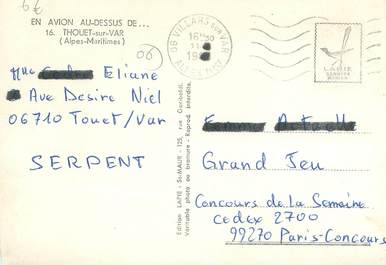 6€
EN AVION AU-DESSUS DE...
16. THOUET-sur-VAR
(Alpes-Maritimes)
06
Mlle Eliane
Ave Desire Niel
06710 Touet/Var
SERPENT
06 VILLARS sur VAR
16H30
ALPES MMES
Edition LAPIE - St-MAUR - 125, rue Garibaldi.
Véritable photo au bromure - Reprod. interdite.
LAPIE
Grand Jeu
Concours de La Semaine
cedex 2700
99270 Paris-Concours